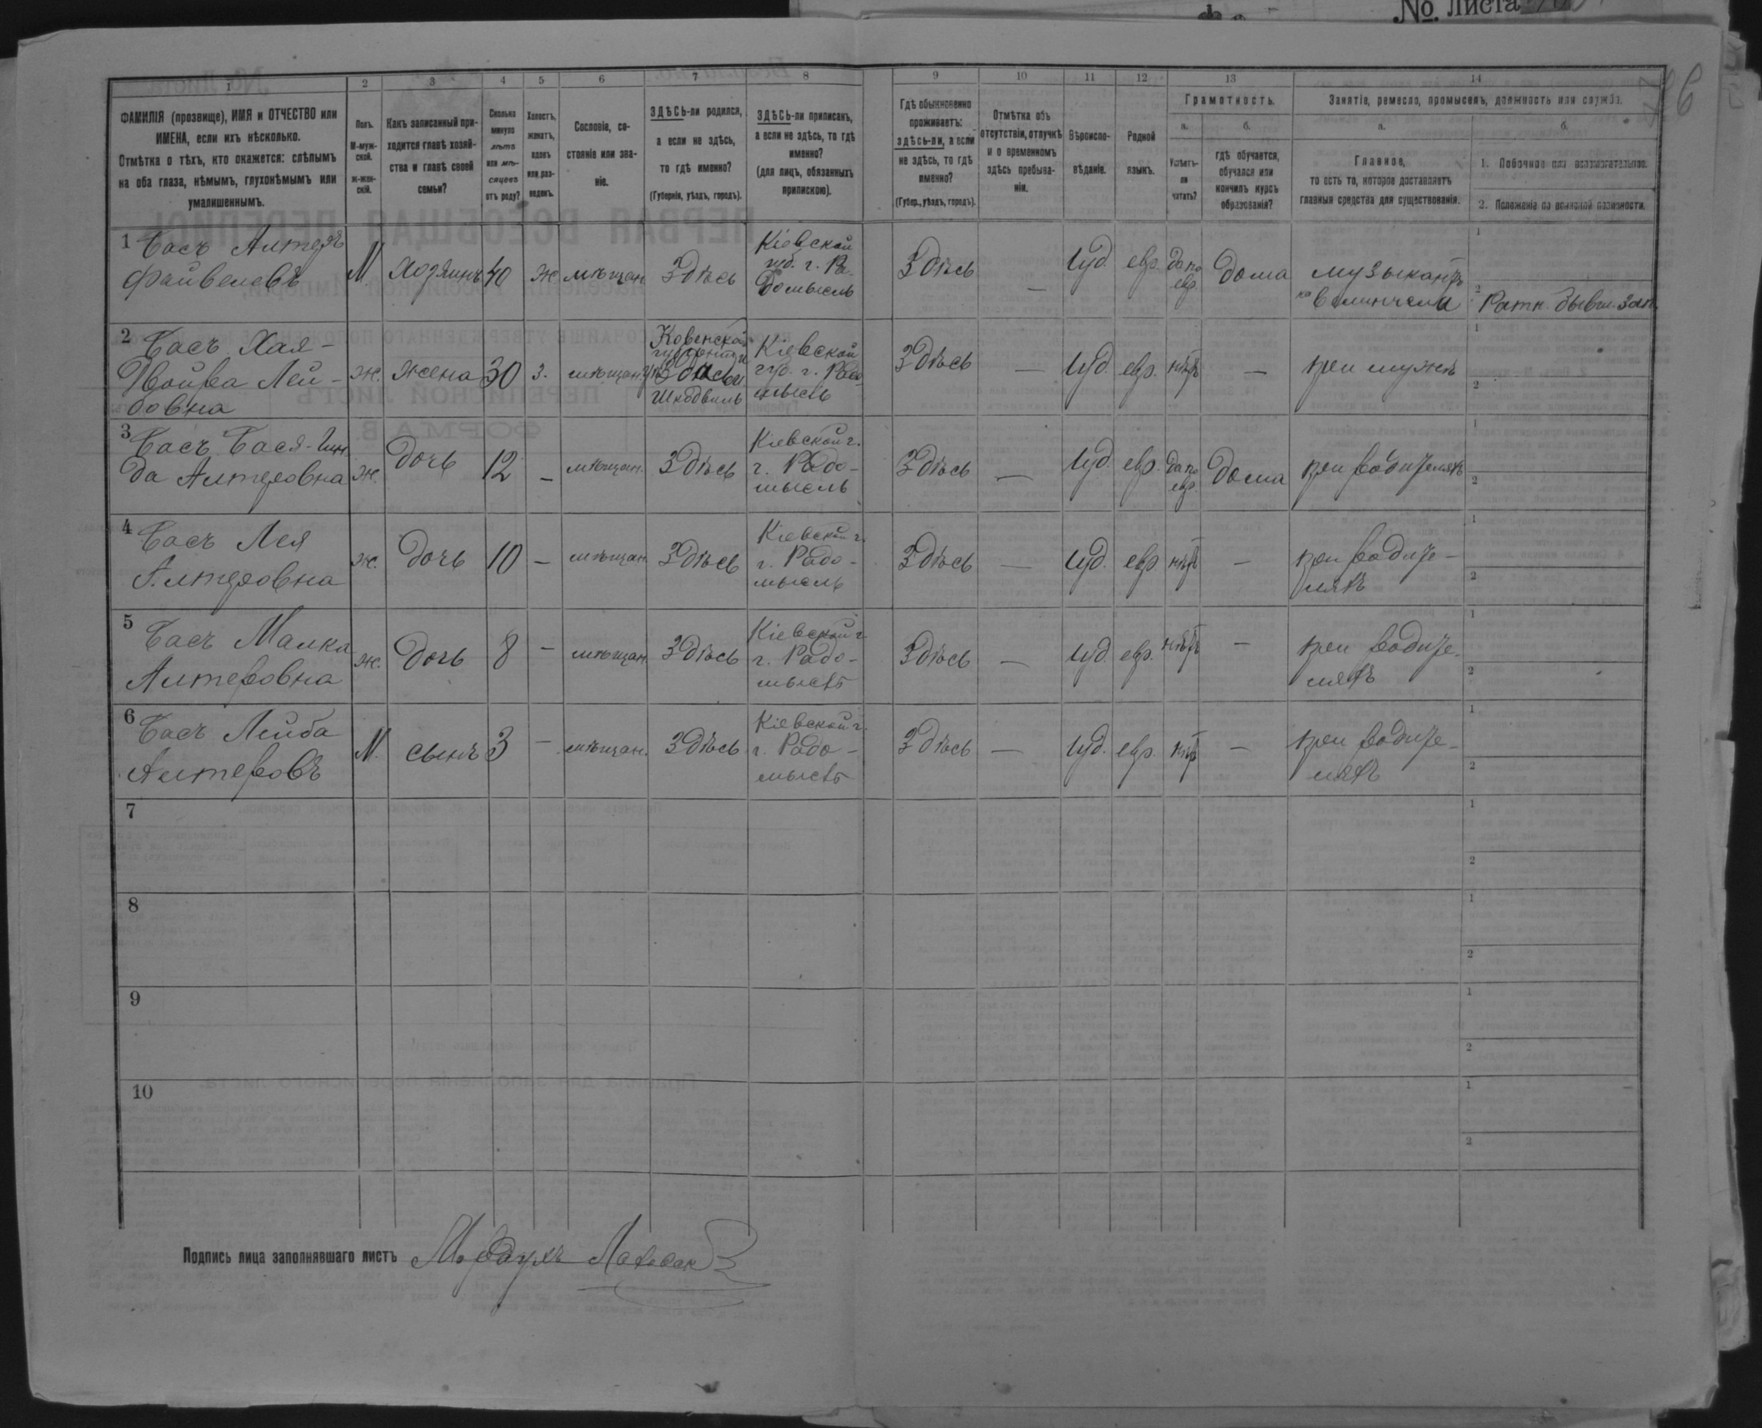 No. Листа
1 2 3 4 5 6 7 8 9 10 11 12 13 14
ФАМИЛІЯ (прозвище), ИМЯ и ОТЧЕСТВО или
ИМЕНА, если ихъ нѣсколько.
Отмѣтка о тѣхъ, кто окажется: слѣпымъ
на оба глаза, нѣмымъ, глухонѣмымъ или
умалишеннымъ.
Полъ.
М-муж-
ской.
Ж-жен-
скій.
Какъ записанный при-
ходится главѣ хозяй-
ства и главѣ своей
семьи?
Сколько
минуло
лѣтъ
или мѣ-
сяцевъ
отъ роду?
Холостъ,
женатъ,
вдовъ
или раз-
веденъ.
Сословіе, со-
стояніе или зва-
ніе.
ЗДѢСЬ-ли родился,
а если не здѣсь,
то гдѣ именно?
(Губернія, уѣздъ, городъ).
ЗДѢСЬ-ли приписанъ,
а если не здѣсь, то гдѣ
именно?
(для лицъ, обязанныхъ
припискою).
Гдѣ обыкновенно
проживаетъ:
здѣсь-ли, а если
не здѣсь, то гдѣ
именно?
(Губер., уѣздъ, городъ).
Отмѣтка объ
отсутствіи, отлучкѣ
и о временномъ
здѣсь пребыва-
ніи.
Вѣроиспо-
вѣданіе.
Родной
языкъ.
Грамотность.
а.
Умѣетъ-
ли
читать?
б.
гдѣ обучается,
обучался или
кончилъ курсъ
образованія?
Занятіе, ремесло, промыселъ, должность или служба.
а.
Главное,
то есть то, которое доставляетъ
главныя средства для существованія.
б.
1. Побочное или вспомогательное.
2. Положеніе по воинской повинности.
1 Басъ Алтеръ
Файвелевъ
М хозяинъ 40 ж мѣщан здѣсь
Кіевской
губ. г. Ра-
домысль
Здѣсь — Іуд. евр. да по
евр. дома музыкантъ
Ратн. бывш. зап.
2 Басъ Хая-
Двойра Лей-
бовна
ж. жена 30 з. мѣщан.
Ковенской
губерніи
Кіевской
губ. г. Радо
мысль
Здѣсь — Іуд. евр. нѣтъ — при мужѣ
3 Басъ Бася-Гин
да Алтеровна
ж. дочь 12 — мѣщан. здѣсь
Кіевской г.
г. Радо-
мысль
Здѣсь — Іуд. евр. да по
евр. дома при родителяхъ
4 Басъ Лея
Алтеровна
ж. дочь 10 — мѣщан здѣсь
Кіевской г.
г. Радо-
мысль
Здѣсь — Іуд. евр нѣтъ — при родите-
ляхъ
5 Басъ Малка
Алтеровна
ж. дочь 8 — мѣщан здѣсь
Кіевской г.
г. Радо-
мысль
Здѣсь — Іуд. евр. нѣтъ — при родите-
ляхъ
6 Басъ Лейба
Алтеровъ
М. сынъ 3 — мѣщан. здѣсь
Кіевской г.
г. Радо-
мысль
Здѣсь — Іуд. евр. нѣтъ — при родите-
ляхъ
7
8
9
10
Подпись лица заполнявшаго листъ